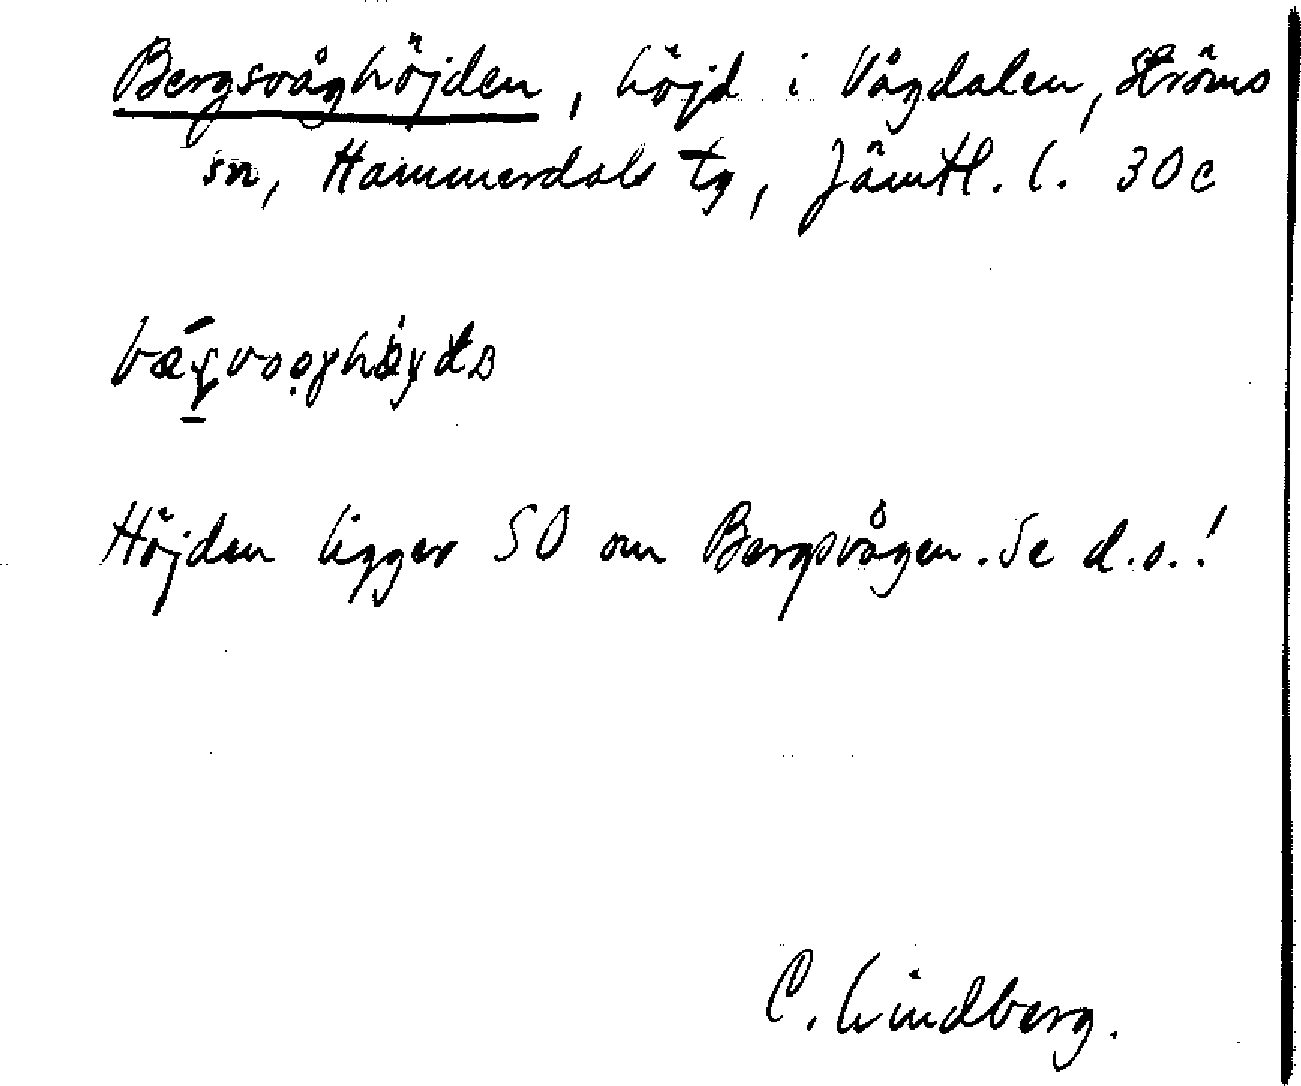 Bergsvåghöjden, höjd i Vågdalen, Ströms
sn, Hammerdals tg, Jämtl. l. 30c
Höjden ligger SO om Bergsvågen. Se d.o.!
C. Lindberg.